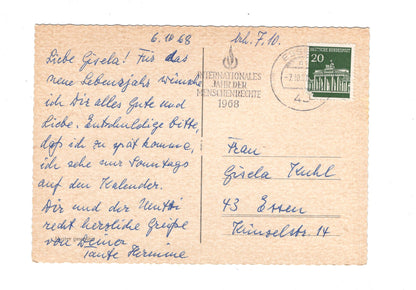 6.10.68
erh. 7.10.
Liebe Gisela! Für das
neue Lebensjahr wünsche
ich Dir alles Gute und
Liebe. Entschuldige bitte,
daß ich zu spät komme,
ich sehe nur Sonntags
auf den Kalender.
Dir und der Mutti
recht herzliche Grüße
von Deiner
Tante Hermine
INTERNATIONALES
JAHR DER
MENSCHENRECHTE
1968
DEUTSCHE BUNDESPOST
20
Frau
Gisela Kuhl
43 Essen